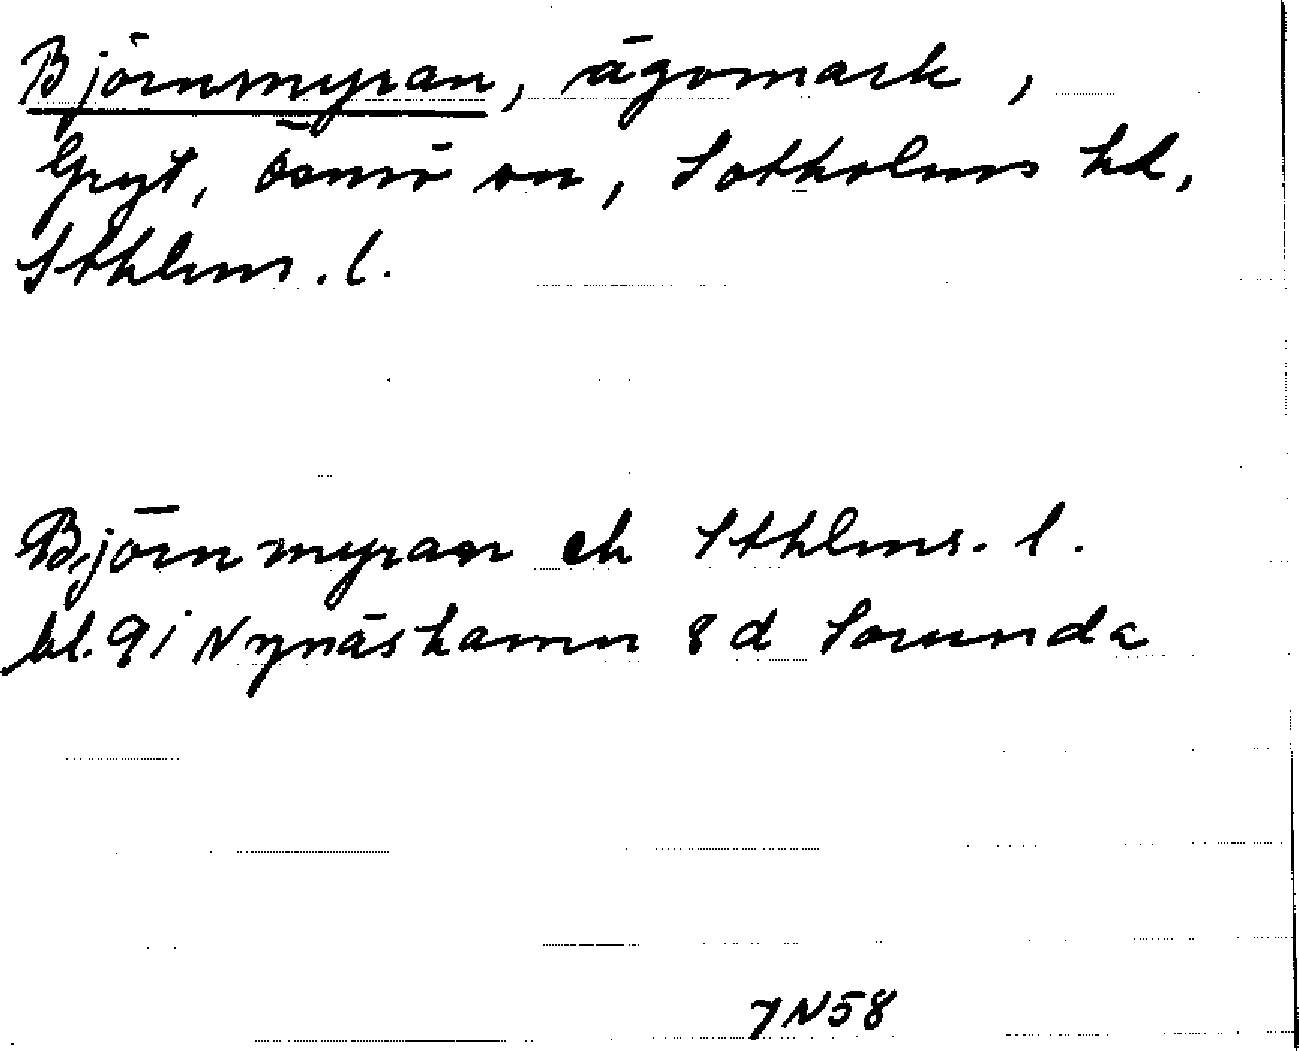 Björnsmyran, ägomark,
Gryt, Ösmo sn, Sotholms hd,
Sthlms. l.
Björnmyran ek Sthlms. l.
bl. 9 i Nynäshamn 8d Sorunda
7N58